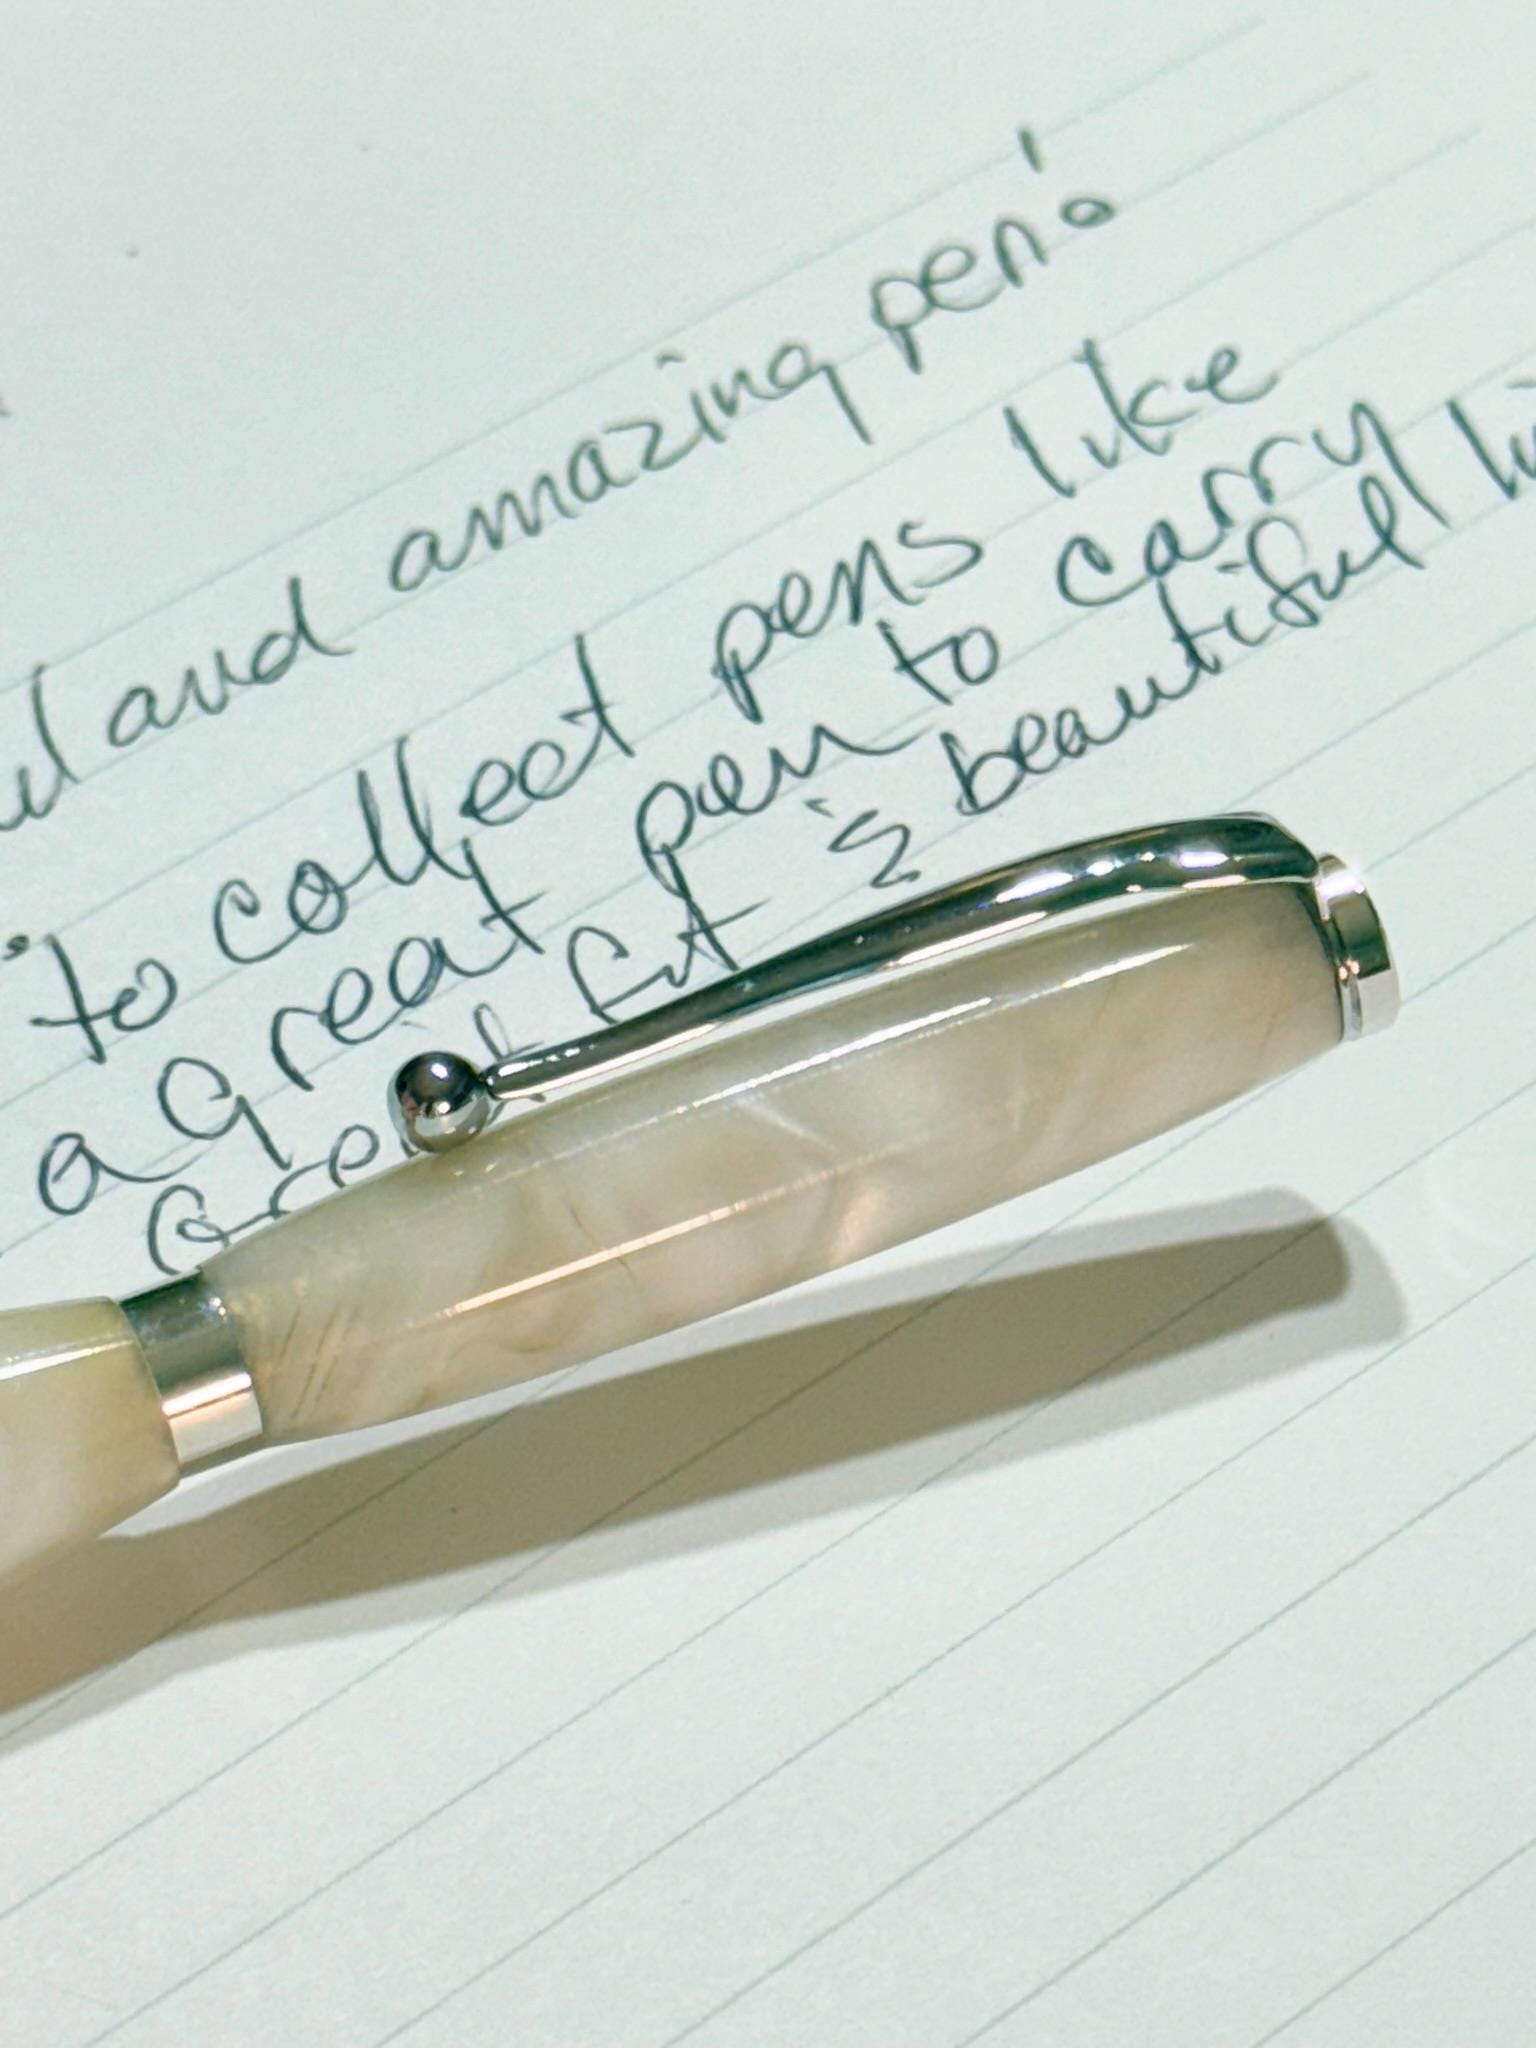 and amazing pen!
to collect pens like
a great pen to carry
fit & beautiful